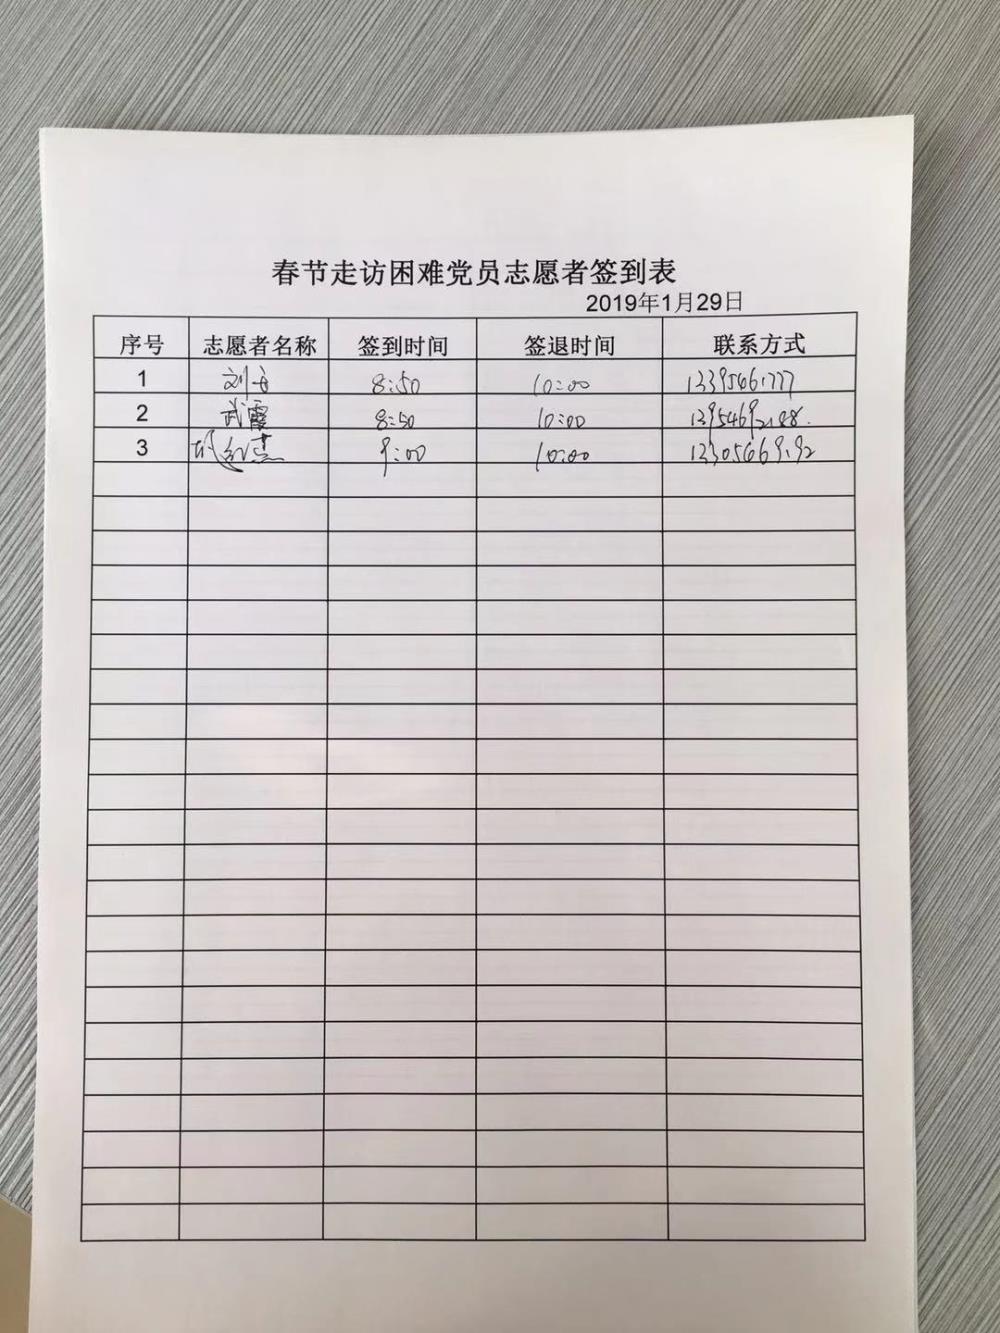 春节走访困难党员志愿者签到表
2019年1月29日
序号 志愿者名称 签到时间 签退时间 联系方式
1 刘 8:50 10:00 13395461777
2 武霞 8:50 10:00
3 9:00 10:00 13305669192